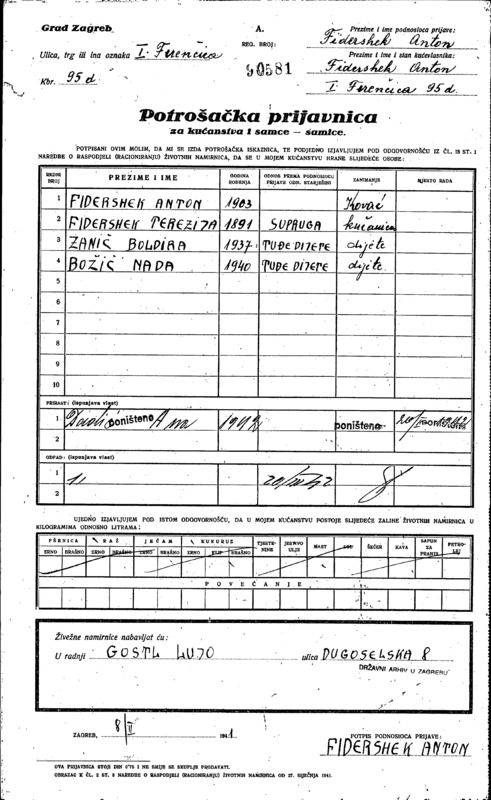 Grad Zagreb
Ulica, trg ili ina oznaka I. Ferenčica
Kbr. 95 d
A.
REG. BROJ:
90581
Prezime i ime podnosioca prijave:
Fidershek Anton
Prezime i ime i stan kućevlasnika:
Fidershek Anton
I. Ferenčica 95 d.
Potrošačka prijavnica
za kućanstva i samce – samice.
POTPISANI OVIM MOLIM, DA MI SE IZDA POTROŠAČKA ISKAZNICA, TE PODJEDNO IZJAVLJUJEM POD ODGOVORNOŠĆU IZ ČL. 18 ST. 1
NAREDBE O RASPODJELI (RACIONIRANJU) ŽIVOTNIH NAMIRNICA, DA SE U MOJEM KUĆANSTVU HRANE SLIJEDEĆE OSOBE:
REDNI BROJ PREZIME I IME GODINA ROĐENJA ODNOS PREMA PODNOSIOCU PRIJAVE ODN. STARJEŠINI ZANIMANJE MJESTO RADA
1 FIDERSHEK ANTON 1903 Kovač
2 FIDERSHEK TEREZIJA 1891 SUPRUGA kućanica
3 ŽANIĆ BOLDIRA 1937 TUĐE DIJETE dijete
4 BOŽIĆ NADA 1940 TUĐE DIJETE dijete
5
6
7
8
9
10
PRIRAST: (ispunjava vlast)
1 poništeno Ana 1942 poništeno
2
OTPAD: (ispunjava vlast)
1
2
UJEDNO IZJAVLJUJEM POD ISTOM ODGOVORNOŠĆU, DA U MOJEM KUĆANSTVU POSTOJE SLIJEDEĆE ZALIHE ŽIVOTNIH NAMIRNICA U
KILOGRAMIMA ODNOSNO LITRAMA:
PŠENICA RAŽ JEČAM KUKURUZ TJESTENINE JESTIVO ULJE MAST ŠEĆER KAVA SAPUN ZA PRANJE PETROLEJ
ZRNO BRAŠNO ZRNO BRAŠNO ZRNO BRAŠNO ZRNO KLIP BRAŠNO
POVEĆANJE
Živežne namirnice nabavljat ću:
U radnji GOSTL LUJO ulica DUGOSELSKA 8
DRŽAVNI ARHIV U ZAGREBU
ZAGREB, 8/II 1941
POTPIS PODNOSIOCA PRIJAVE:
FIDERSHEK ANTON
OVA PRIJAVNICA STOJI DIN 0'75 I NE SMIJE SE SKUPLJE PRODAVATI.
OBRAZAC K ČL. 2 ST. 2 NAREDBE O RASPODJELI (RACIONIRANJU) ŽIVOTNIH NAMIRNICA OD 27. SIJEČNJA 1941.